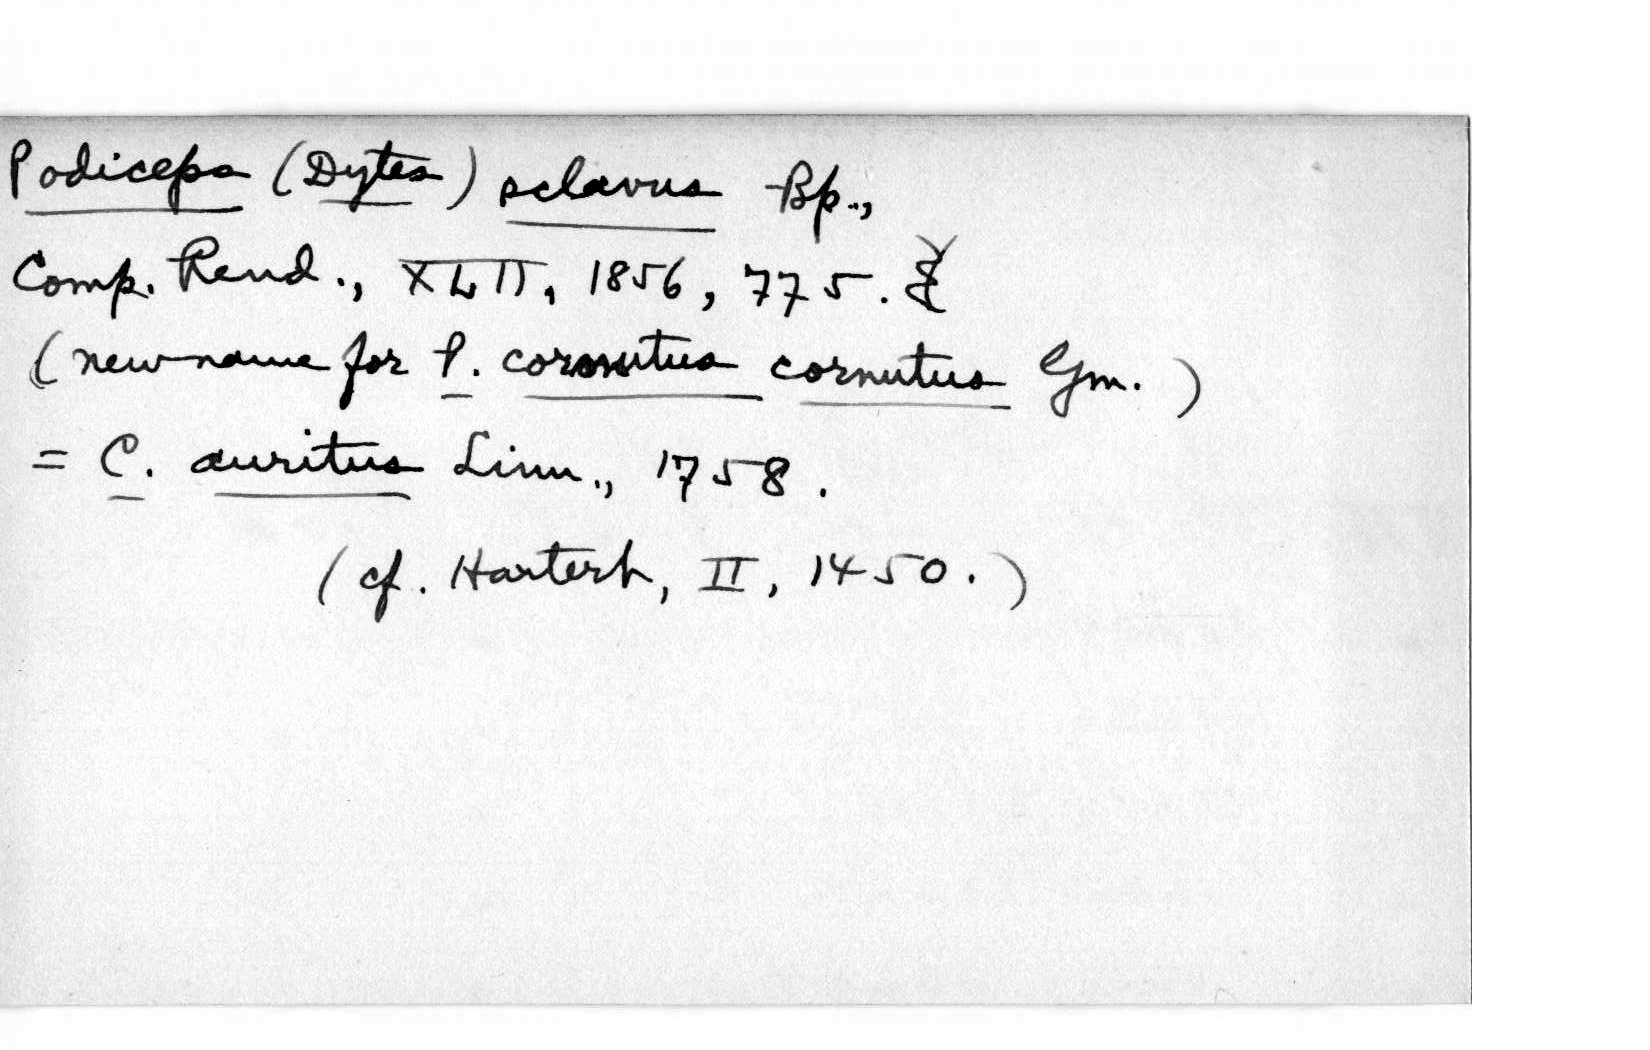 Podiceps (Dytes) sclavus Bp.,
Comp. Rend., XLII, 1856, 775.
(new name for P. cornutus cornutus Gm.)
= C. auritus Linn., 1758.
(cf. Hartert, II, 1450.)